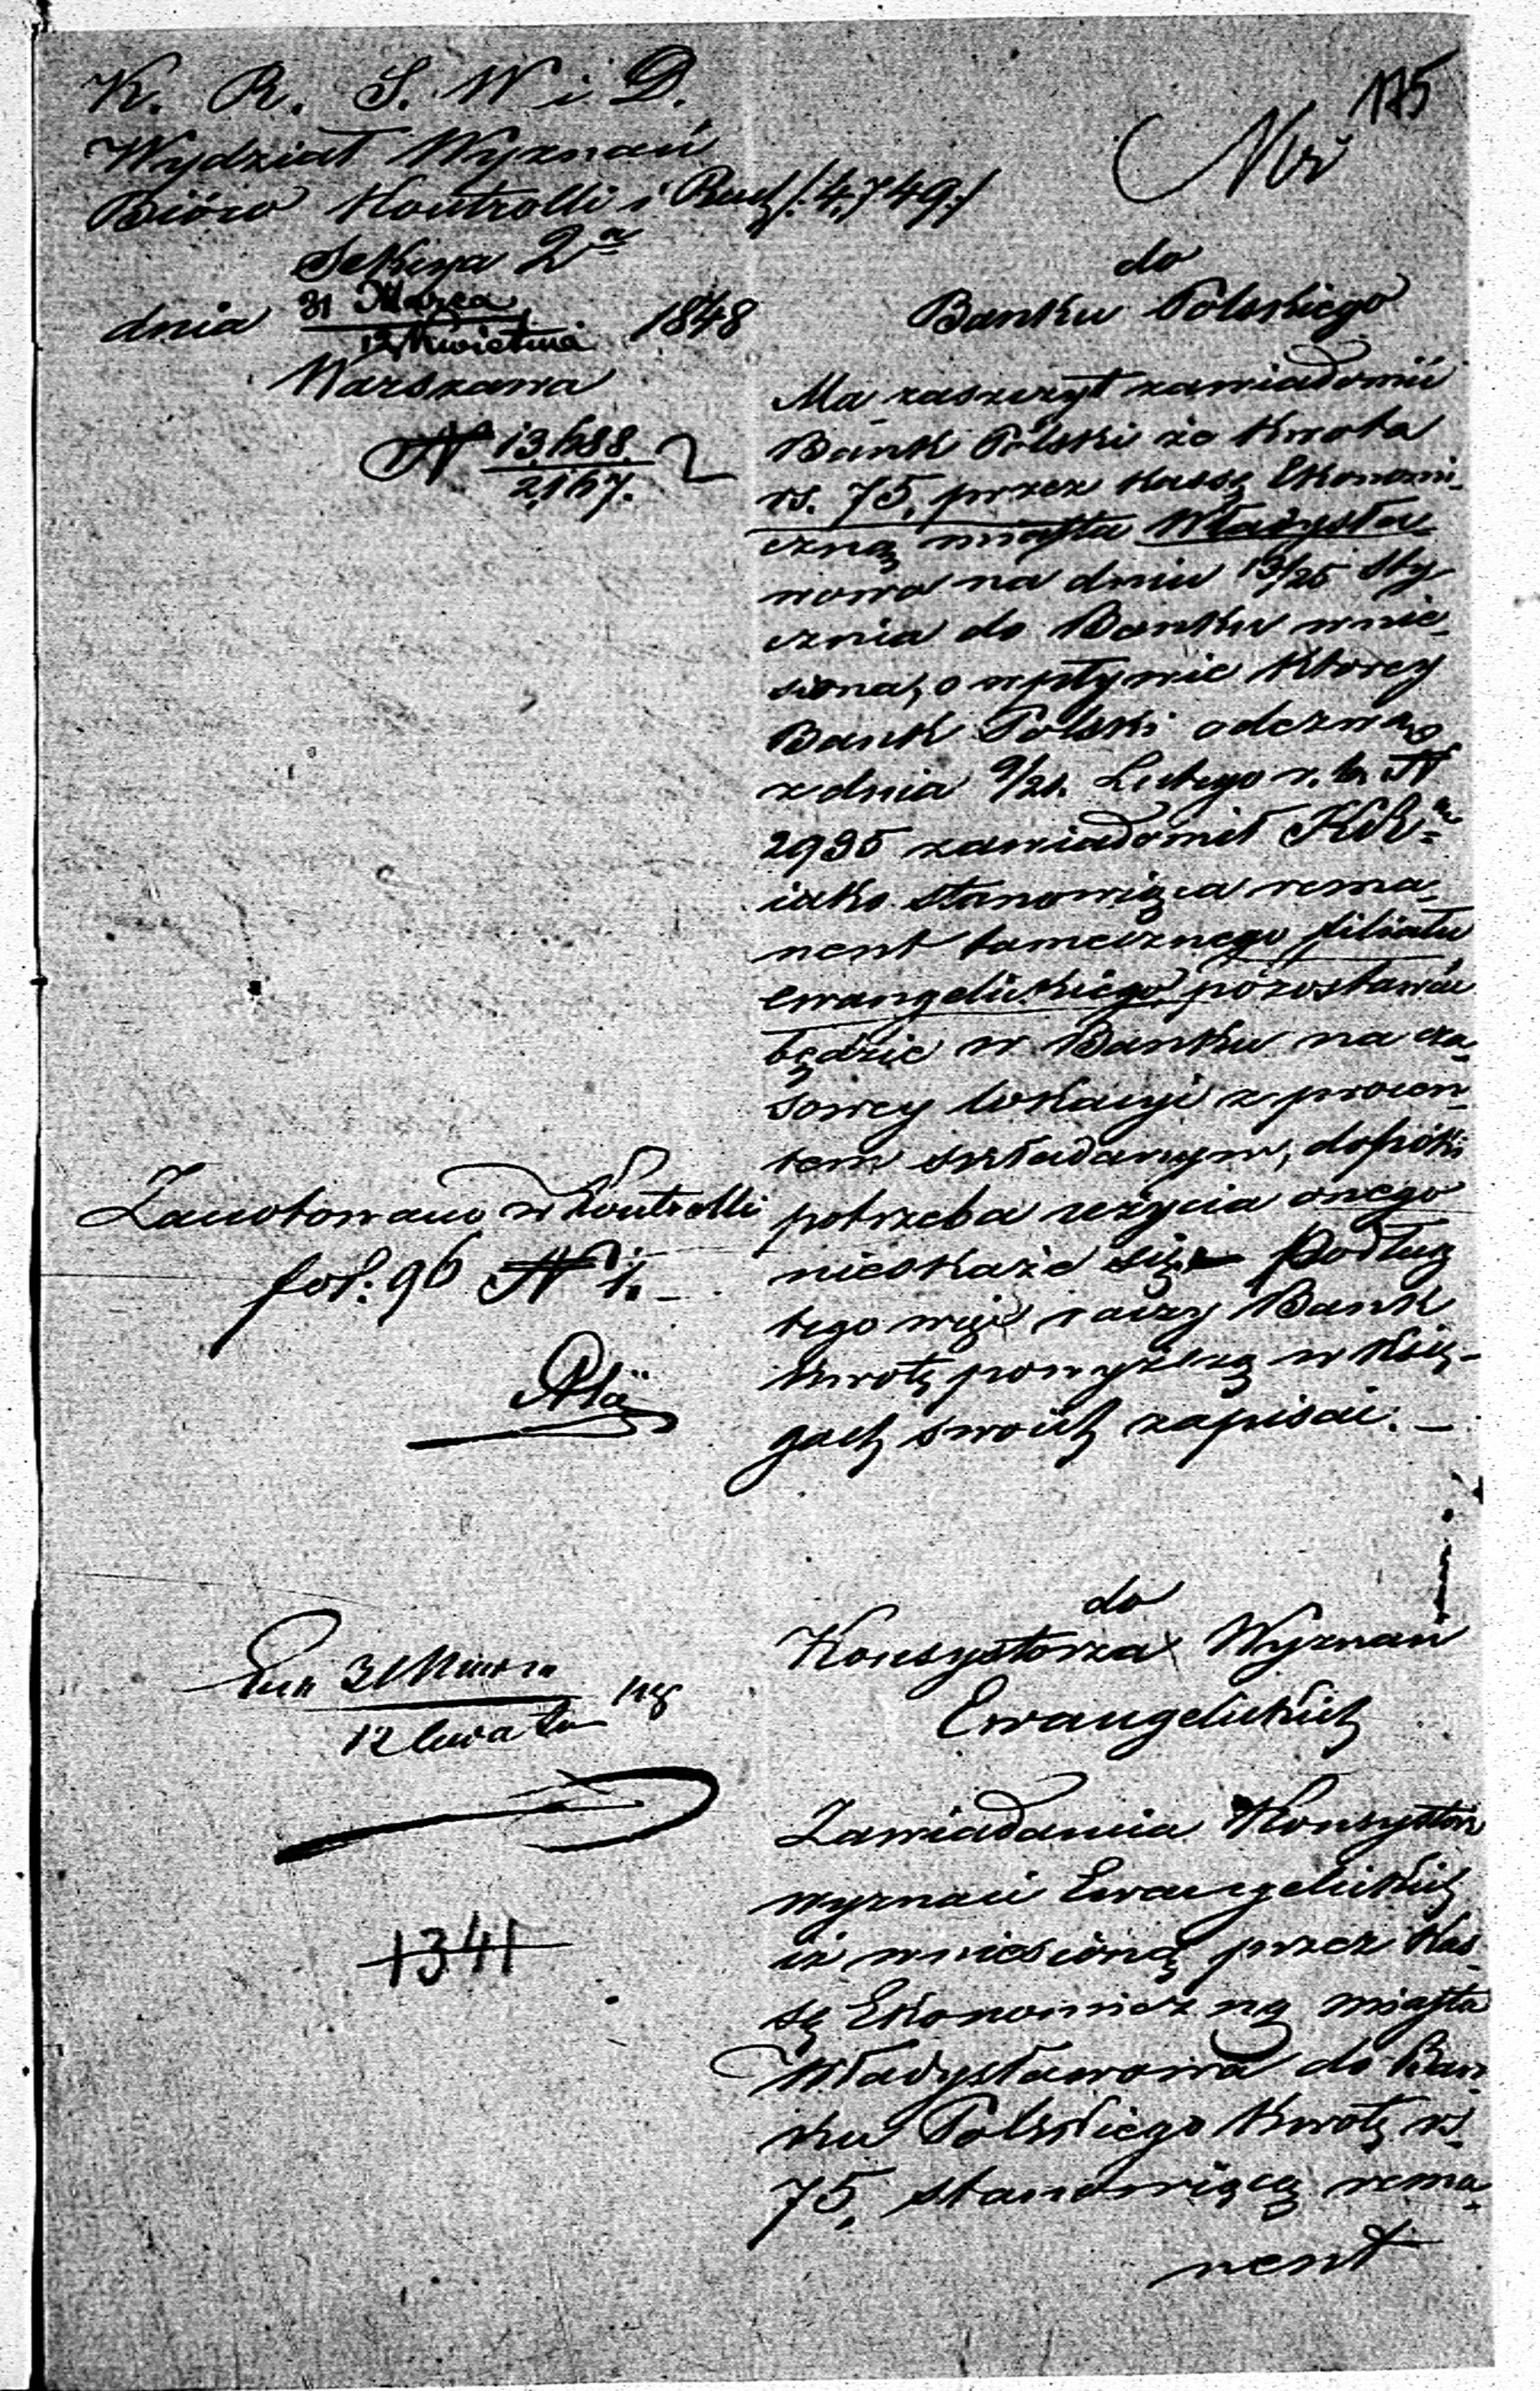 K. R. S. W i D.
Wydział Wyznań
Bióro Kontrolli i Rach /:4,749:/
Sekcya 2a
dnia 31 Marca / 12 Kwietnia 1848
Warszawa
N 13688 / 2,167.
175
do
Banku Polskiego
Ma zaszczyt zawiadomić
Bank Polski że kwota
rs. 75, przez Kassę Ekonomi-
czną miasta Władysła-
wowa na dniu 13/25 Sty-
cznia do Banku wnie-
siona, o wpływie ktorey
Bank Polski odezwą
z dnia 9/21. Lutego r. b. N
2935 zawiadomił
iako stanowiąca rema-
nent tamecznego filiału
ewangelickiego, pozostawać
będzie w Banku na cza-
sowey lokacyi z procen-
tem składanym, dopóki
potrzeba użycia onego
nieokaże się. Podług
tego więc raczy Bank
kwotę powyższą w Księ-
gach swoich zapisać. –
Zanotowano w Kontrolli
fol: 96 N 1. –
do
Konsystorza Wyznań
Ewangelickich
Zawiadamia Konsystorz
wyznań Ewangelickich
iż wniesioną przez Kas-
sę Ekonomiczną miasta
Władysławowa do Ban-
ku Polskiego kwotę rs.
75, stanowiącą rema-
nent
31 Marca
12
1341